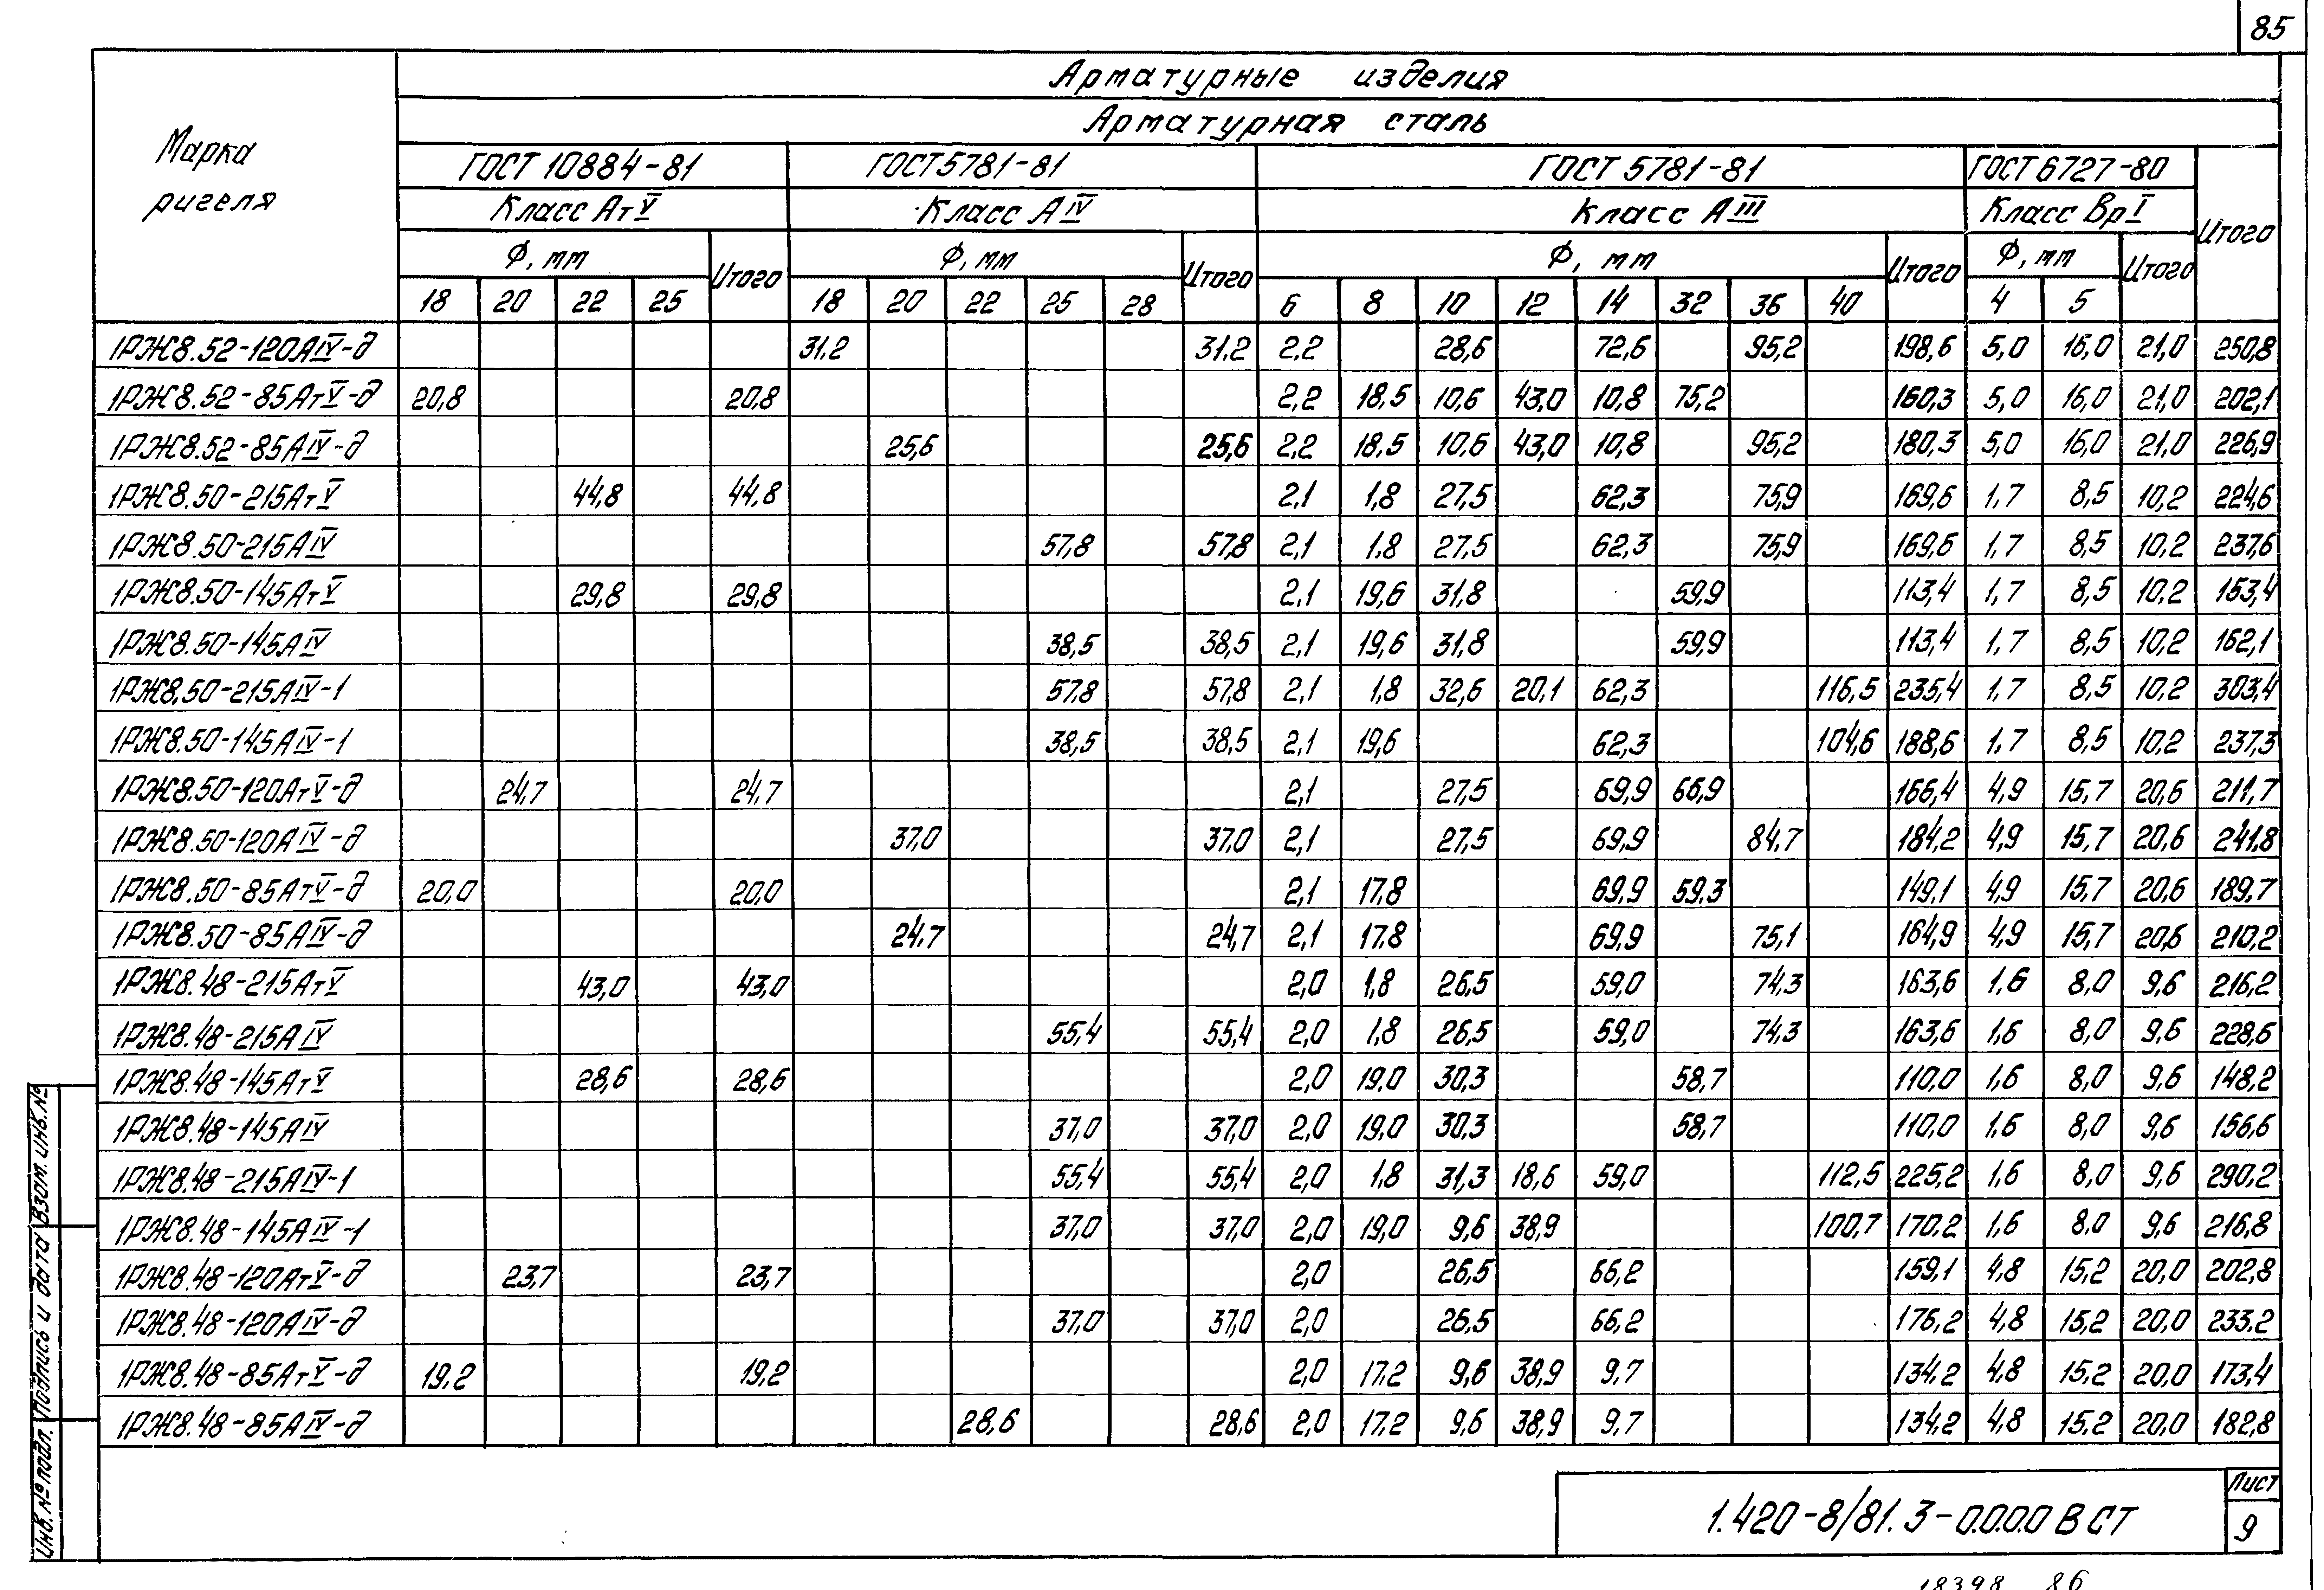 85
Арматурные изделия
Арматурная сталь
Марка ригеля
ГОСТ 10884-81 ГОСТ 5781-81 ГОСТ 5781-81 ГОСТ 6727-80 Итого
Класс АтV Класс АIV Класс АIII Класс ВрI
Ф, мм Итого Ф, мм Итого Ф, мм Итого Ф, мм Итого
18 20 22 25 18 20 22 25 28 6 8 10 12 14 32 36 40 4 5
1РЖ8.52-120АIV-д 31,2 31,2 2,2 28,6 72,6 95,2 198,6 5,0 16,0 21,0 250,8
1РЖ8.52-85АтV-д 20,8 20,8 2,2 18,5 10,6 43,0 10,8 75,2 160,3 5,0 16,0 21,0 202,1
1РЖ8.52-85АIV-д 25,6 25,6 2,2 18,5 10,6 43,0 10,8 95,2 180,3 5,0 16,0 21,0 226,9
1РЖ8.50-215АтV 44,8 44,8 2,1 1,8 27,5 62,3 75,9 169,6 1,7 8,5 10,2 224,6
1РЖ8.50-215АIV 57,8 57,8 2,1 1,8 27,5 62,3 75,9 169,6 1,7 8,5 10,2 237,6
1РЖ8.50-145АтV 29,8 29,8 2,1 19,6 31,8 59,9 113,4 1,7 8,5 10,2 153,4
1РЖ8.50-145АIV 38,5 38,5 2,1 19,6 31,8 59,9 113,4 1,7 8,5 10,2 162,1
1РЖ8.50-215АIV-1 57,8 57,8 2,1 1,8 32,6 20,1 62,3 116,5 235,4 1,7 8,5 10,2 303,4
1РЖ8.50-145АIV-1 38,5 38,5 2,1 19,6 62,3 104,6 188,6 1,7 8,5 10,2 237,3
1РЖ8.50-120АтV-д 24,7 24,7 2,1 27,5 69,9 66,9 166,4 4,9 15,7 20,6 211,7
1РЖ8.50-120АIV-д 37,0 37,0 2,1 27,5 69,9 84,7 184,2 4,9 15,7 20,6 241,8
1РЖ8.50-85АтV-д 20,0 20,0 2,1 17,8 69,9 59,3 149,1 4,9 15,7 20,6 189,7
1РЖ8.50-85АIV-д 24,7 24,7 2,1 17,8 69,9 75,1 164,9 4,9 15,7 20,6 210,2
1РЖ8.48-215АтV 43,0 43,0 2,0 1,8 26,5 59,0 74,3 163,6 1,6 8,0 9,6 216,2
1РЖ8.48-215АIV 55,4 55,4 2,0 1,8 26,5 59,0 74,3 163,6 1,6 8,0 9,6 228,6
1РЖ8.48-145АтV 28,6 28,6 2,0 19,0 30,3 58,7 110,0 1,6 8,0 9,6 148,2
1РЖ8.48-145АIV 37,0 37,0 2,0 19,0 30,3 58,7 110,0 1,6 8,0 9,6 156,6
1РЖ8.48-215АIV-1 55,4 55,4 2,0 1,8 31,3 18,6 59,0 112,5 225,2 1,6 8,0 9,6 290,2
1РЖ8.48-145АIV-1 37,0 37,0 2,0 19,0 9,6 38,9 100,7 170,2 1,6 8,0 9,6 216,8
1РЖ8.48-120АтV-д 23,7 23,7 2,0 26,5 66,2 159,1 4,8 15,2 20,0 202,8
1РЖ8.48-120АIV-д 37,0 37,0 2,0 26,5 66,2 176,2 4,8 15,2 20,0 233,2
1РЖ8.48-85АтV-д 19,2 19,2 2,0 17,2 9,6 38,9 9,7 134,2 4,8 15,2 20,0 173,4
1РЖ8.48-85АIV-д 28,6 28,6 2,0 17,2 9,6 38,9 9,7 134,2 4,8 15,2 20,0 182,8
Инв. № подл. Подпись и дата Взам. инв. №
1.420-8/81.3-0.0.0.0 ВСТ
Лист
9
18398 86